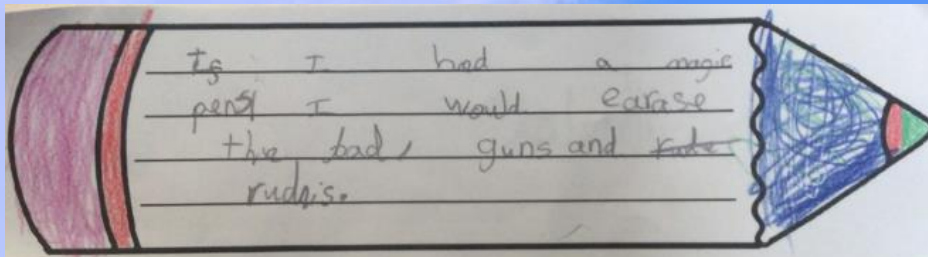 If I had a magic
pensl I would earase
the bad, guns and rude
rudnis.